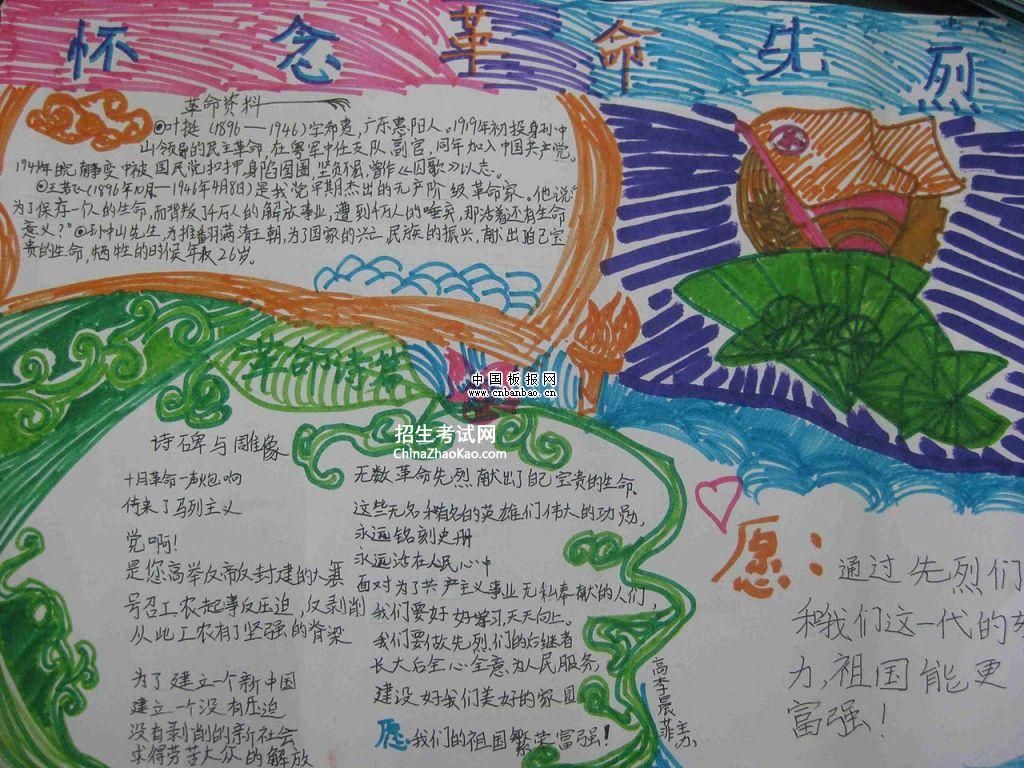 怀念革命先烈
革命资料
◎叶挺(1896—1946)字希夷,广东惠阳人。1919年初投身孙中
山领导的民主革命,在粤军中任支队副官,同年加入中国共产党。
1941年皖南事变中被国民党扣押,身陷囹圄,坚贞不屈,曾作《囚歌》以志。
◎王若飞(1896年10月—1946年4月8日)是我党早期杰出的无产阶级革命家。他说“
为了保存一个人的生命,而背叛了千万人的解放事业,遭到千万人的唾弃,那活着还有生命
意义?”◎孙中山先生,为推翻满清王朝,为了国家的兴亡,民族的振兴,献出自己宝
贵的生命,牺牲的时候年仅26岁。
革命诗篇
中国板报网
www.cnbanbao.cn
招生考试网
ChinaZhaoKao.com
诗碑与雕像
十月革命一声炮响
传来了马列主义
党啊!
是您高举反帝反封建的大纛
号召工农起来反压迫,反剥削
从此工农有了坚强的脊梁
为了建立一个新中国
建立一个没有压迫
没有剥削的新社会
求得劳苦大众的解放
无数革命先烈献出了自己宝贵的生命。
这些无名和有名的英雄们伟大的功勋,
永远铭刻史册
永远活在人民心中
面对为了共产主义事业无私奉献的人们,
我们要好好学习天天向上。
我们要做先烈们的后继者
长大后全心全意为人民服务
建设好我们美好的家园
愿我们的祖国繁荣富强!
愿:
通过先烈们
和我们这一代的努
力,祖国能更
富强!